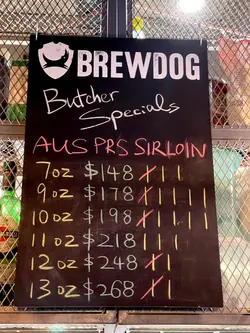 BREWDOG
Butcher
Specials
AUS PRS SIRLOIN
7oz $148
9oz $178
10oz $198
11oz $218
12oz $248
13oz $268